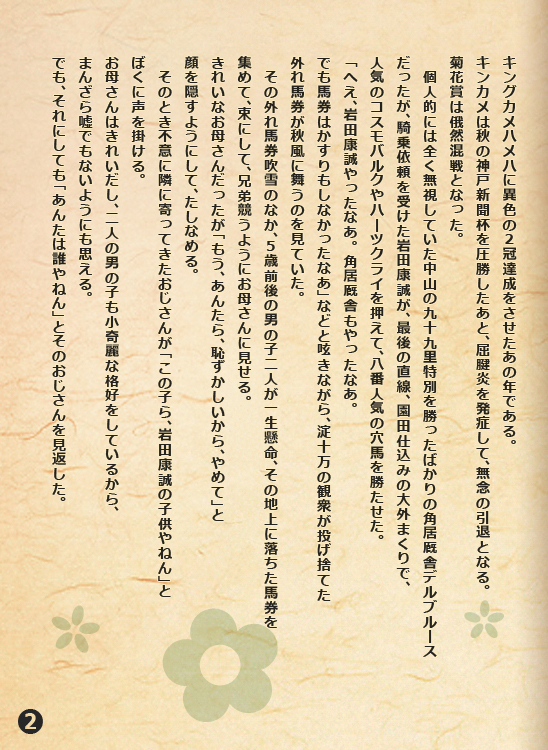 キングカメハメハに異色の２冠達成をさせたあの年である。
キンカメは秋の神戸新聞杯を圧勝したあと、屈腱炎を発症して、無念の引退となる。
菊花賞は俄然混戦となった。
個人的には全く無視していた中山の九十九里特別を勝ったばかりの角居厩舎デルブルース
だったが、騎乗依頼を受けた岩田康誠が、最後の直線、園田仕込みの大外まくりで、
人気のコスモバルクやハーツクライを押えて、八番人気の穴馬を勝たせた。
「へえ、岩田康誠やったなあ。角居厩舎もやったなあ。
でも馬券はかすりもしなかったなあ」などと呟きながら、淀十万の観衆が投げ捨てた
外れ馬券が秋風に舞うのを見ていた。
その外れ馬券吹雪のなか、５歳前後の男の子二人が一生懸命、その地上に落ちた馬券を
集めて、束にして、兄弟競うようにお母さんに見せる。
きれいなお母さんだったが「もう、あんたら、恥ずかしいから、やめて」と
顔を隠すようにして、たしなめる。
そのとき不意に隣に寄ってきたおじさんが「この子ら、岩田康誠の子供やねん」と
ぼくに声を掛ける。
お母さんはきれいだし、二人の男の子も小奇麗な格好をしているから、
まんざら嘘でもないようにも思える。
でも、それにしても「あんたは誰やねん」とそのおじさんを見返した。
2